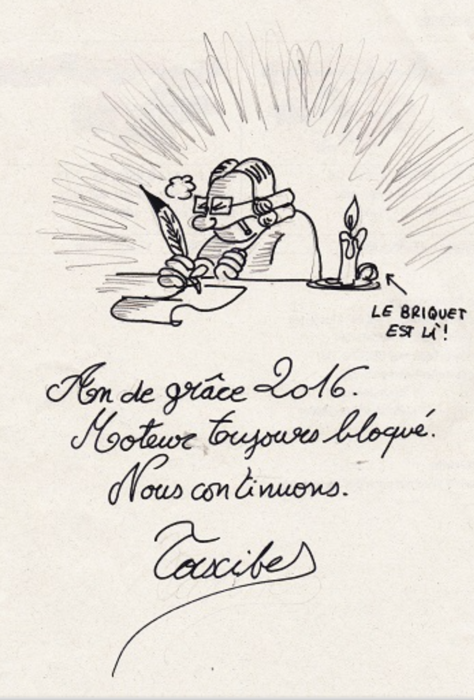 LE BRIQUET
EST LÀ !
An de grâce 2016.
Moteur toujours bloqué.
Nous continuons.